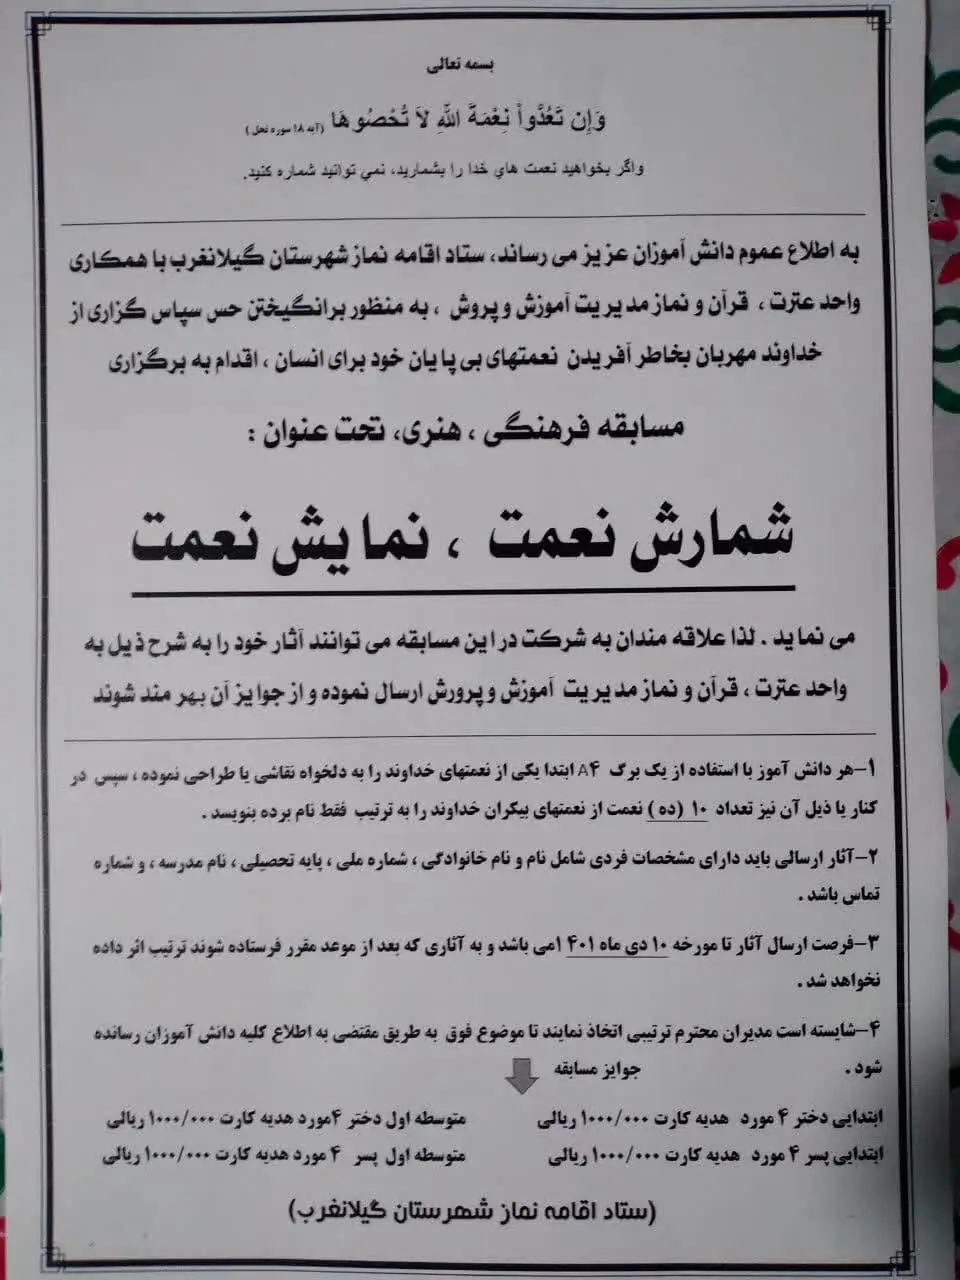 بسمه تعالی
وَإِن تَعُدُّواْ نِعْمَةَ اللّهِ لاَ تُحْصُوهَا (آیه ۱۸ سوره نحل)
واگر بخواهيد نعمت هاي خدا را بشماريد، نمي توانيد شماره كنيد.
به اطلاع عموم دانش آموزان عزیز می رساند، ستاد اقامه نماز شهرستان گیلانغرب با همکاری
واحد عترت ، قرآن و نماز مدیریت آموزش و پروش ، به منظور برانگیختن حس سپاس گزاری از
خداوند مهربان بخاطر آفریدن نعمتهای بی پایان خود برای انسان ، اقدام به برگزاری
مسابقه فرهنگی ، هنری، تحت عنوان :
شمارش نعمت ، نمایش نعمت
می نماید . لذا علاقه مندان به شرکت در این مسابقه می توانند آثار خود را به شرح ذیل به
واحد عترت ، قرآن و نماز مدیریت آموزش و پرورش ارسال نموده و از جوایز آن بهر مند شوند
۱-هر دانش آموز با استفاده از یک برگ A۴ ابتدا یکی از نعمتهای خداوند را به دلخواه نقاشی یا طراحی نموده ، سپس در
کنار یا ذیل آن نیز تعداد ۱۰ (ده) نعمت از نعمتهای بیکران خداوند را به ترتیب فقط نام برده بنویسد .
۲-آثار ارسالی باید دارای مشخصات فردی شامل نام و نام خانوادگی ، شماره ملی ، پایه تحصیلی ، نام مدرسه ، و شماره
تماس باشد .
۳-فرصت ارسال آثار تا مورخه ۱۰ دی ماه ۱۴۰۱می باشد و به آثاری که بعد از موعد مقرر فرستاده شوند ترتیب اثر داده
نخواهد شد .
۴-شایسته است مدیران محترم ترتیبی اتخاذ نمایند تا موضوع فوق به طریق مقتضی به اطلاع کلیه دانش آموزان رسانده
شود . جوایز مسابقه
ابتدایی دختر ۴ مورد هدیه کارت ۱۰۰۰/۰۰۰ ریالی متوسطه اول دختر ۴مورد هدیه کارت ۱۰۰۰/۰۰۰ ریالی
ابتدایی پسر ۴ مورد هدیه کارت ۱۰۰۰/۰۰۰ ریالی متوسطه اول پسر ۴ مورد هدیه کارت ۱۰۰۰/۰۰۰ ریالی
(ستاد اقامه نماز شهرستان گیلانغرب)